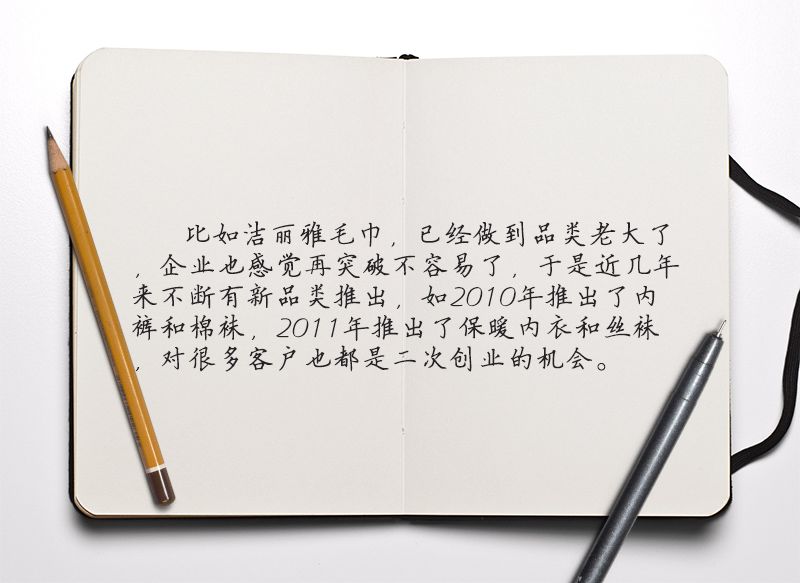 比如洁丽雅毛巾，已经做到品类老大了
，企业也感觉再突破不容易了，于是近几年
来不断有新品类推出，如2010年推出了内
裤和棉袜，2011年推出了保暖内衣和丝袜
，对很多客户也都是二次创业的机会。